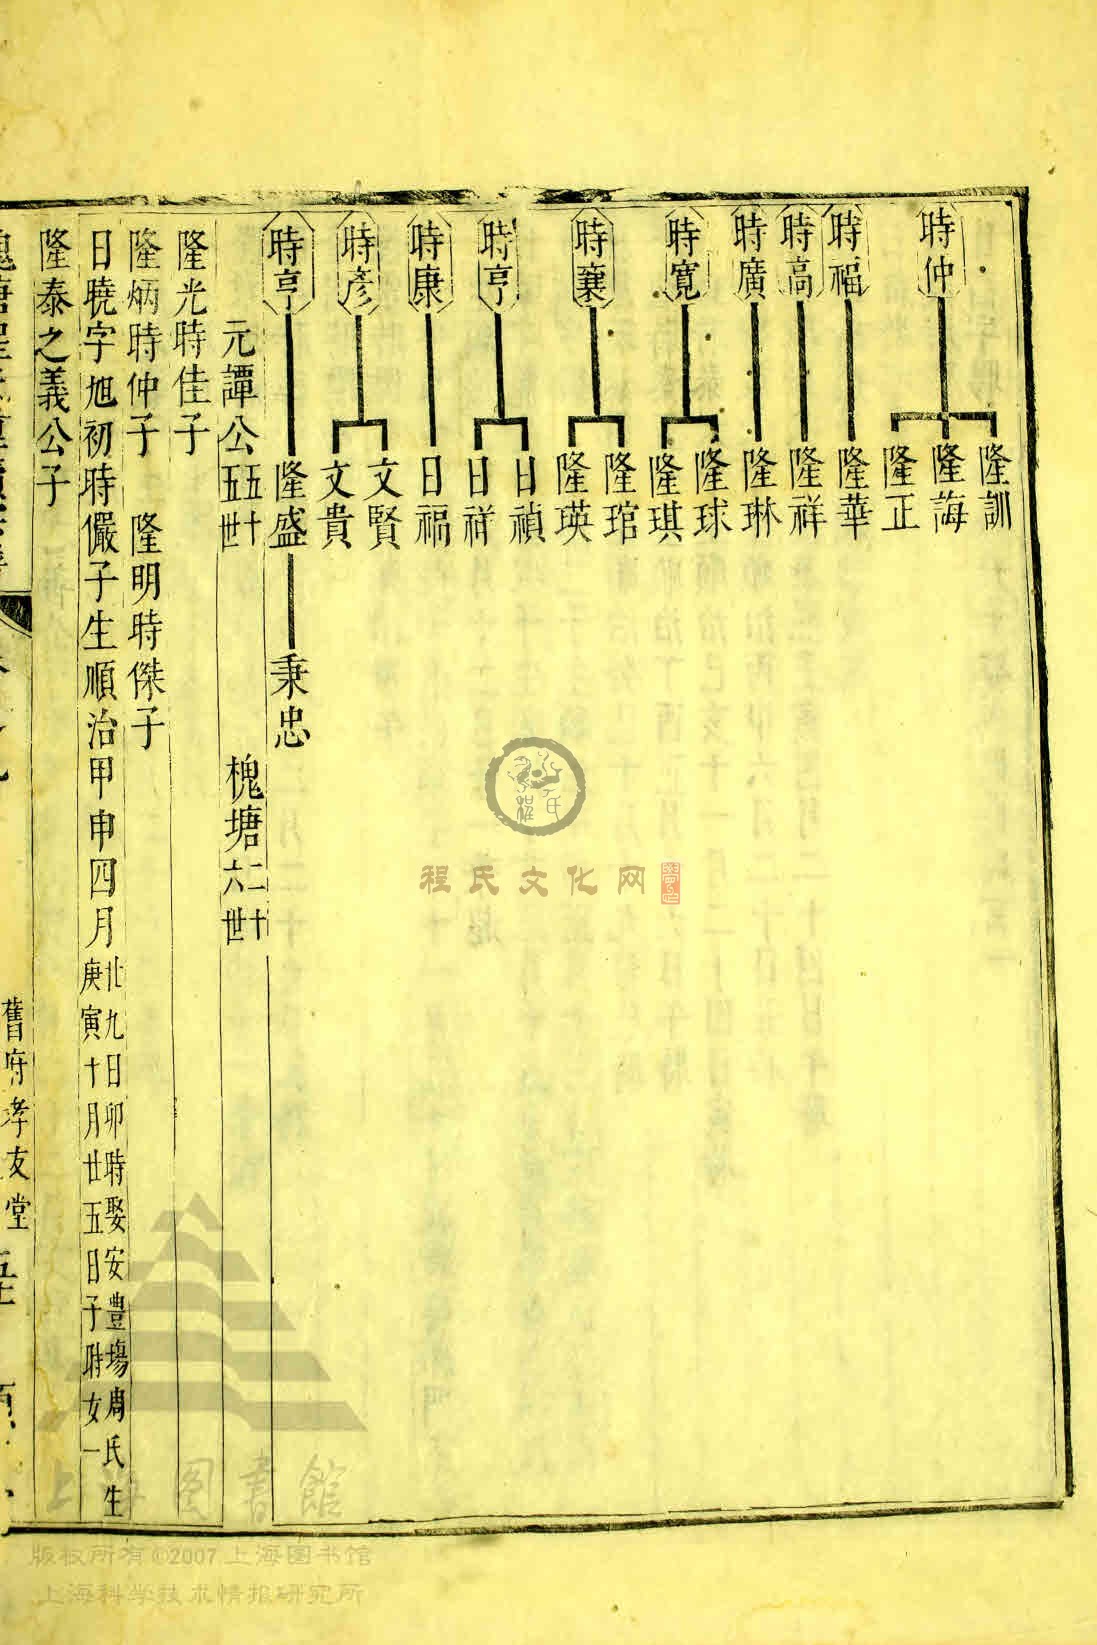 時仲
隆訓
隆誨
隆正
時福
隆華
時高
隆祥
時廣
隆琳
時寬
隆球
隆琪
時襄
隆琯
隆瑛
時亨
日禎
日祥
時康
日福
時彥
文賢
文貴
時亨
隆盛
秉忠
元譚公五十五世
槐塘二十六世
隆光時佳子
隆炳時仲子 隆明時傑子
日曉字旭初時儼子生順治甲申四月廿九日卯時娶安豊塲周氏生庚寅十月廿五日子時女一
隆泰之義公子
舊府孝友堂
程氏文化网
上海图書館
版权所有©2007上海图书馆
上海科学技术情报研究所